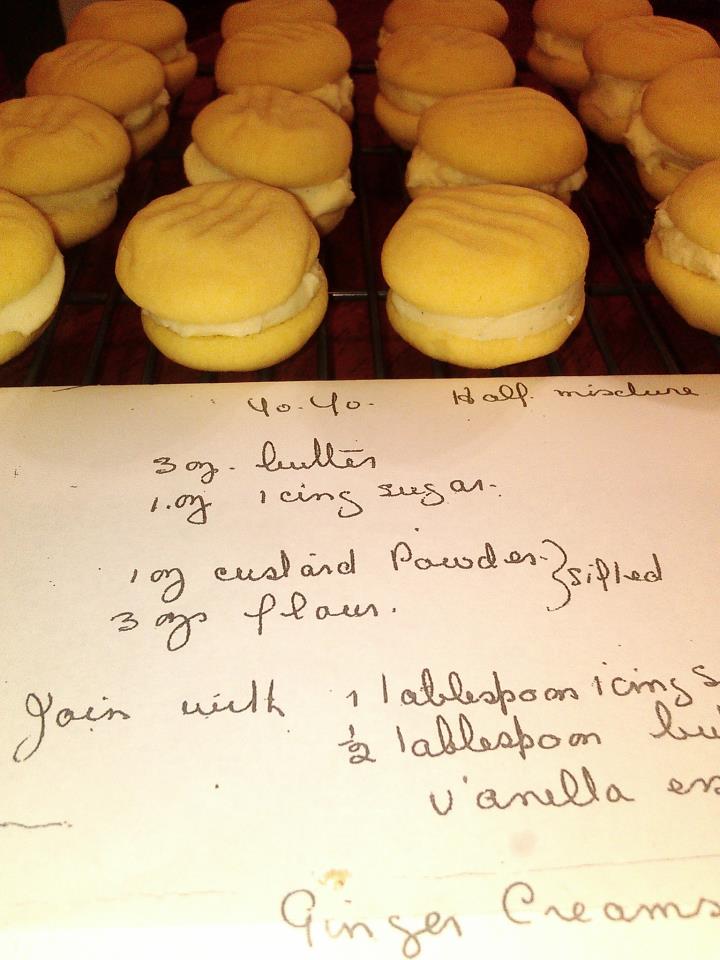 Yo. Yo. Half mixture
3 oz. butter
1. oz icing sugar.
1 oz custard Powder. } sifted
3 ozs flour.
Join with 1 tablespoon icing s
½ tablespoon bu
vanilla es
Ginger Creams